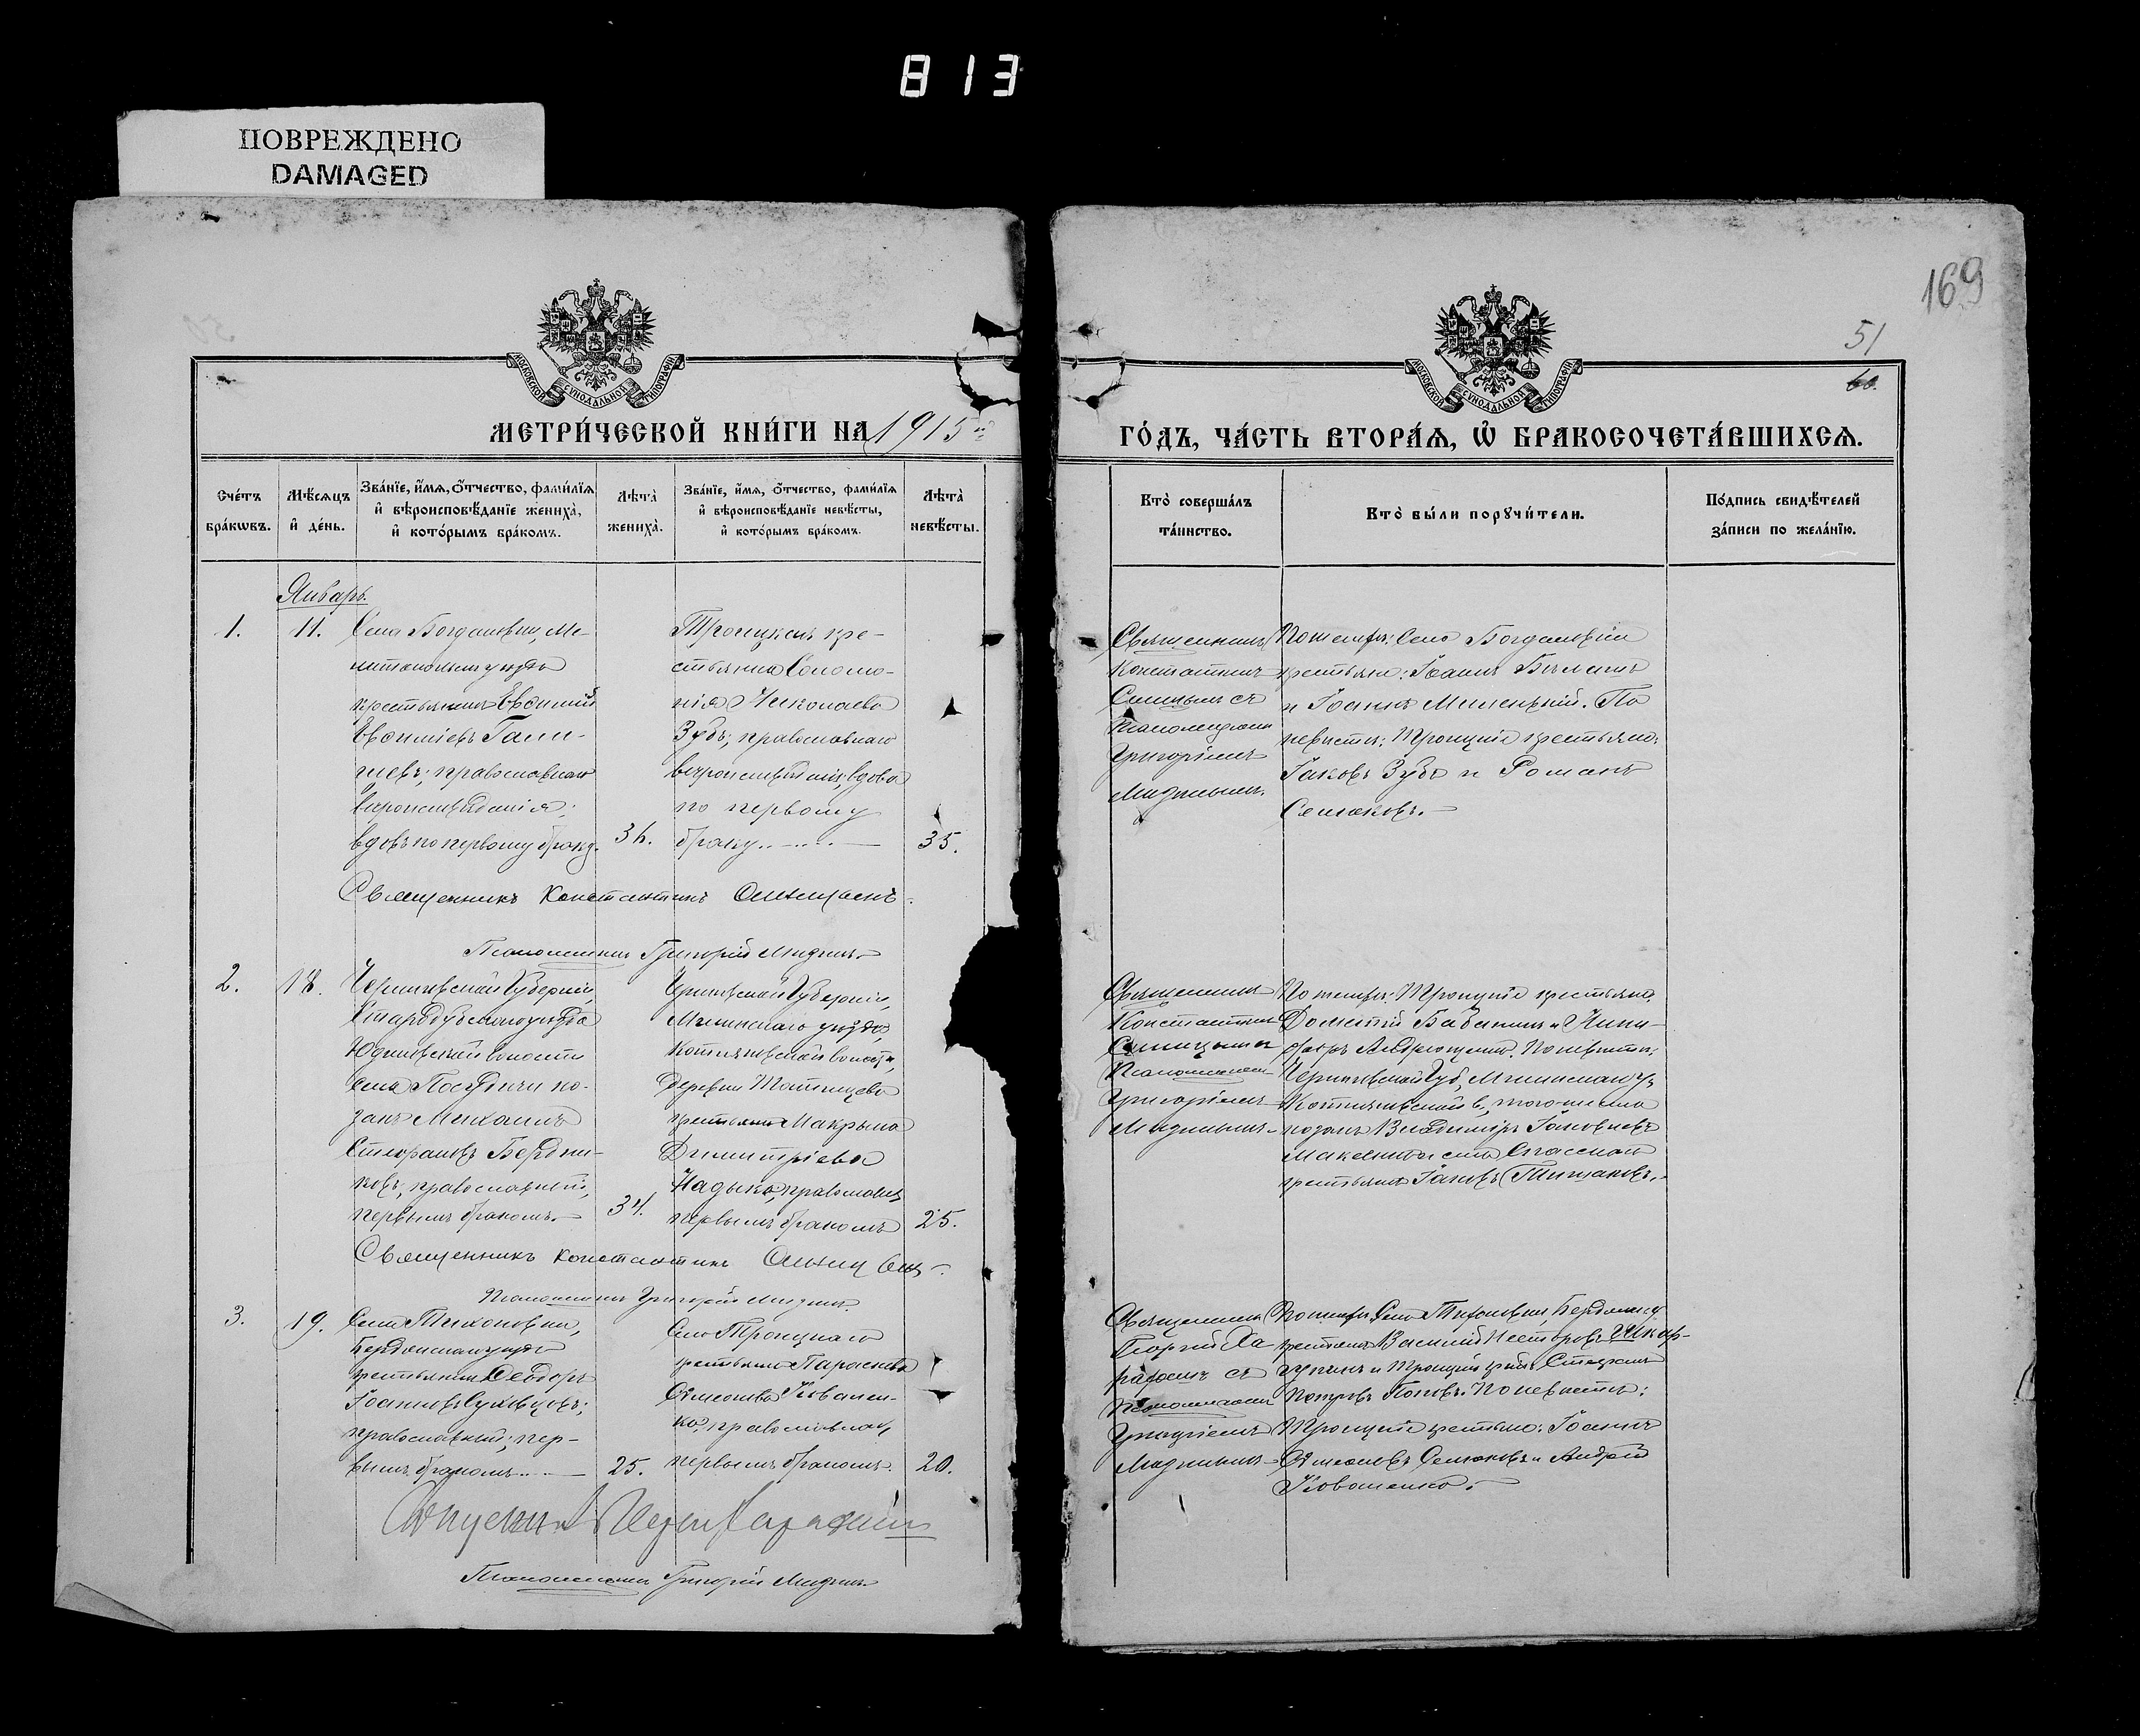 813
ПОВРЕЖДЕНО
DAMAGED
169
51
60.
МОСКОВСКОЙ СѴНОДАЛЬНОЙ ТИПОГРАФІИ
МОСКОВСКОЙ СѴНОДАЛЬНОЙ ТИПОГРАФІИ
МЕТРИ́ЧЕСКОЙ КНИ́ГИ НА 1915й
ГО́ДЪ, ЧА́СТЬ ВТОРА́Ѧ, Ѡ҆ БРАКОСОЧЕТА́ВШИХСѦ.
Сче́тъ бра́кѡвъ.
Мѣ́сяцъ и҆ де́нь.
Зва́нїе, и҆́мя, ѻ҆́тчество, фами́лїя
и҆ вѣроисповѣ́данїе жениха̀,
и҆ кото́рымъ бра́комъ.
Лѣта̀ жениха̀.
Зва́нїе, и҆́мя, ѻ҆́тчество, фами́лїя
и҆ вѣроисповѣ́данїе невѣ́сты,
и҆ кото́рымъ бра́комъ.
Лѣта̀ невѣ́сты.
Кто̀ соверша́лъ
та́инство.
Кто̀ бы́ли порꙋчи́тели.
По́дпись свидѣ́телей
за́писи по жела́нїю.
Январь.
1.
11.
Села Богдановки, Ме-
литопольск. уѣзда
крестьянинъ Евѳимій
Евѳиміевъ
православнаго
вѣроисповѣданія;
вдовъ по первому браку.
Троицкая кре-
стьянка Соломо-
нія Николаева
Зубъ; православнаго
вѣроисповѣданія; вдова
по первому
браку.
35.
Священникъ
Константинъ
Синицынъ съ
Псаломщикомъ
Григоріемъ
Мидинымъ.
По женихѣ: села Богдановки
крестьяне: Іоаннъ
и Іоаннъ По
невѣстѣ: Троицкіе крестьяне:
Іаковъ Зубъ и Романъ
Семаковъ.
Священникъ Константинъ Синицынъ.
Псаломщикъ Григорій Мидинъ
2.
18.
Черниговской Губерніи,
Стародубскаго уѣзда
Юдиновской волости
села Посудичи ко-
закъ Михаилъ
Стефановъ Бердни-
ковъ, православный,
первымъ бракомъ.
34.
Черниговской Губерніи,
Мглинскаго уѣзда,
волости,
деревни
крестьянка Макрына
Димитріева
Надыка, православн.
первымъ бракомъ
25.
Священникъ
Константинъ
Синицынъ
Псаломщикъ
Григоріемъ
Мидинымъ
По женихѣ: Троицкіе крестьяне:
Дометій Бабакинъ и Ники-
форъ Андрющенко. По невѣстѣ:
Черниговской Губ, Мглинскаго у,
козакъ Владимиръ Іаковлевъ
села Спасскаго
крестьянинъ Іаковъ
Священникъ Константинъ Синицынъ
Псаломщикъ Григорій Мидинъ.
3.
19.
Села Тихоновки,
Бердянскаго уѣзда
крестьянинъ Ѳеодоръ
Іоанновъ
православный; пер-
вымъ бракомъ
25.
Села Троицкаго
крестьянка Параскева
Симеонова Ковален-
ко, православная,
первымъ бракомъ.
20.
Священникъ
Георгій Ха
съ
Псаломщикомъ
Григоріемъ
Мидинымъ
По женихѣ: села Тихоновки, Бердянск. у
крестьян. Василій Несторовъ
и Троицкій Стефанъ
Петровъ Поповъ. По невѣстѣ:
Троицкіе крестьяне: Іоаннъ
Симеоновъ Семаковъ и Андрей
Коваленко.
Псаломщикъ Григорій Мидинъ